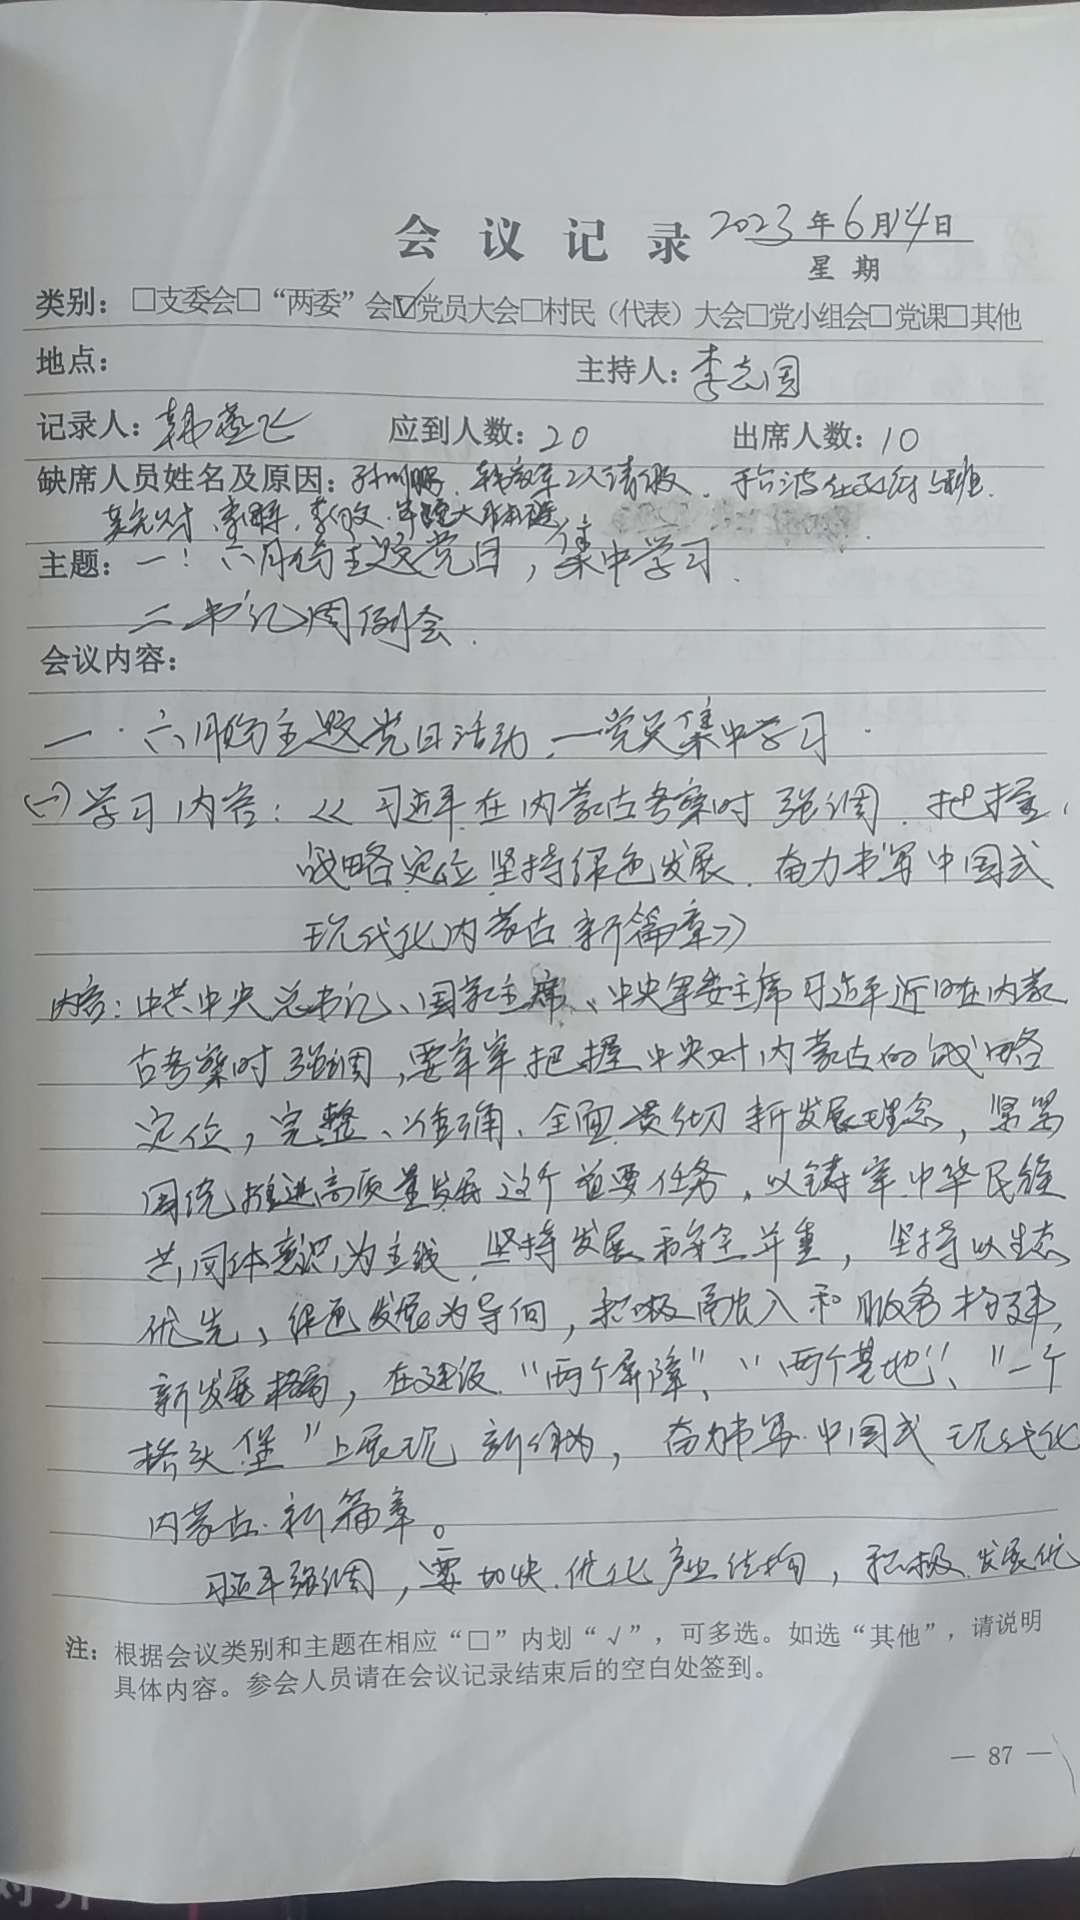 会议记录 2023年6月14日
星期
类别：□支委会□“两委”会☑党员大会□村民（代表）大会□党小组会□党课□其他
地点： 主持人：李志国
记录人：韩燕飞 应到人数：20 出席人数：10
缺席人员姓名及原因：2人请假
主题：一！六月份主题党日，集中学习．
二 书记周例会．
会议内容：
一．六月份主题党日活动．—党员集中学习．
(一)学习内容：《习近平在内蒙古考察时强调．把握
战略定位坚持绿色发展．奋力书写中国式
现代化内蒙古新篇章》
内容：中共中央总书记、国家主席、中央军委主席习近平近日在内蒙
古考察时强调，要牢牢把握中央对内蒙古的战略
定位，完整、准确、全面贯彻新发展理念，紧紧
围绕推进高质量发展这个首要任务，以铸牢中华民族
共同体意识为主线，坚持发展和安全并重，坚持以生态
优先、绿色发展为导向，积极融入和服务构建
新发展格局，在建设“两个屏障”、“两个基地”、“一个
桥头堡”上展现新作为，奋力书写中国式现代化
内蒙古新篇章。
习近平强调，要加快优化产业结构，积极发展优
注：根据会议类别和主题在相应“□”内划“√”，可多选。如选“其他”，请说明
具体内容。参会人员请在会议记录结束后的空白处签到。
— 87 —